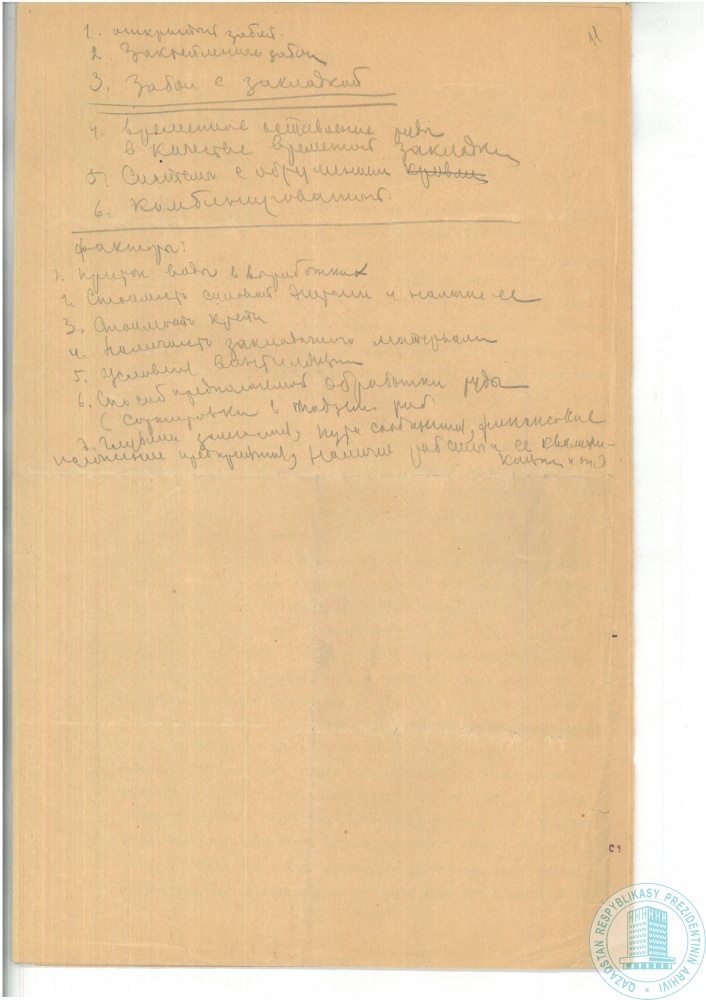 11
1. открытый забой.
2. Закрепленные забои
3. Забои с закладкой
4. Временное оставление руды
в качестве временной закладки
5. Системы с обрушением кровли
6. Комбинированные.
Факторы:
1. Приток воды в выработках
2. Стоимость силовой энергии и наличие ее
3. Стоимость крепи
4. Наличность закладочного материала
5. Условия вентиляции
6. Способ предполагаемой обработки руды
(Сортировки в
7. Глубина залегания, пути сообщения, финансовые
положение предприятия, наличие рабсилы и ее квалифи-
кации и т.д
QAZAQSTAN RESPYBLIKASY PREZIDENTININ ARHIVI